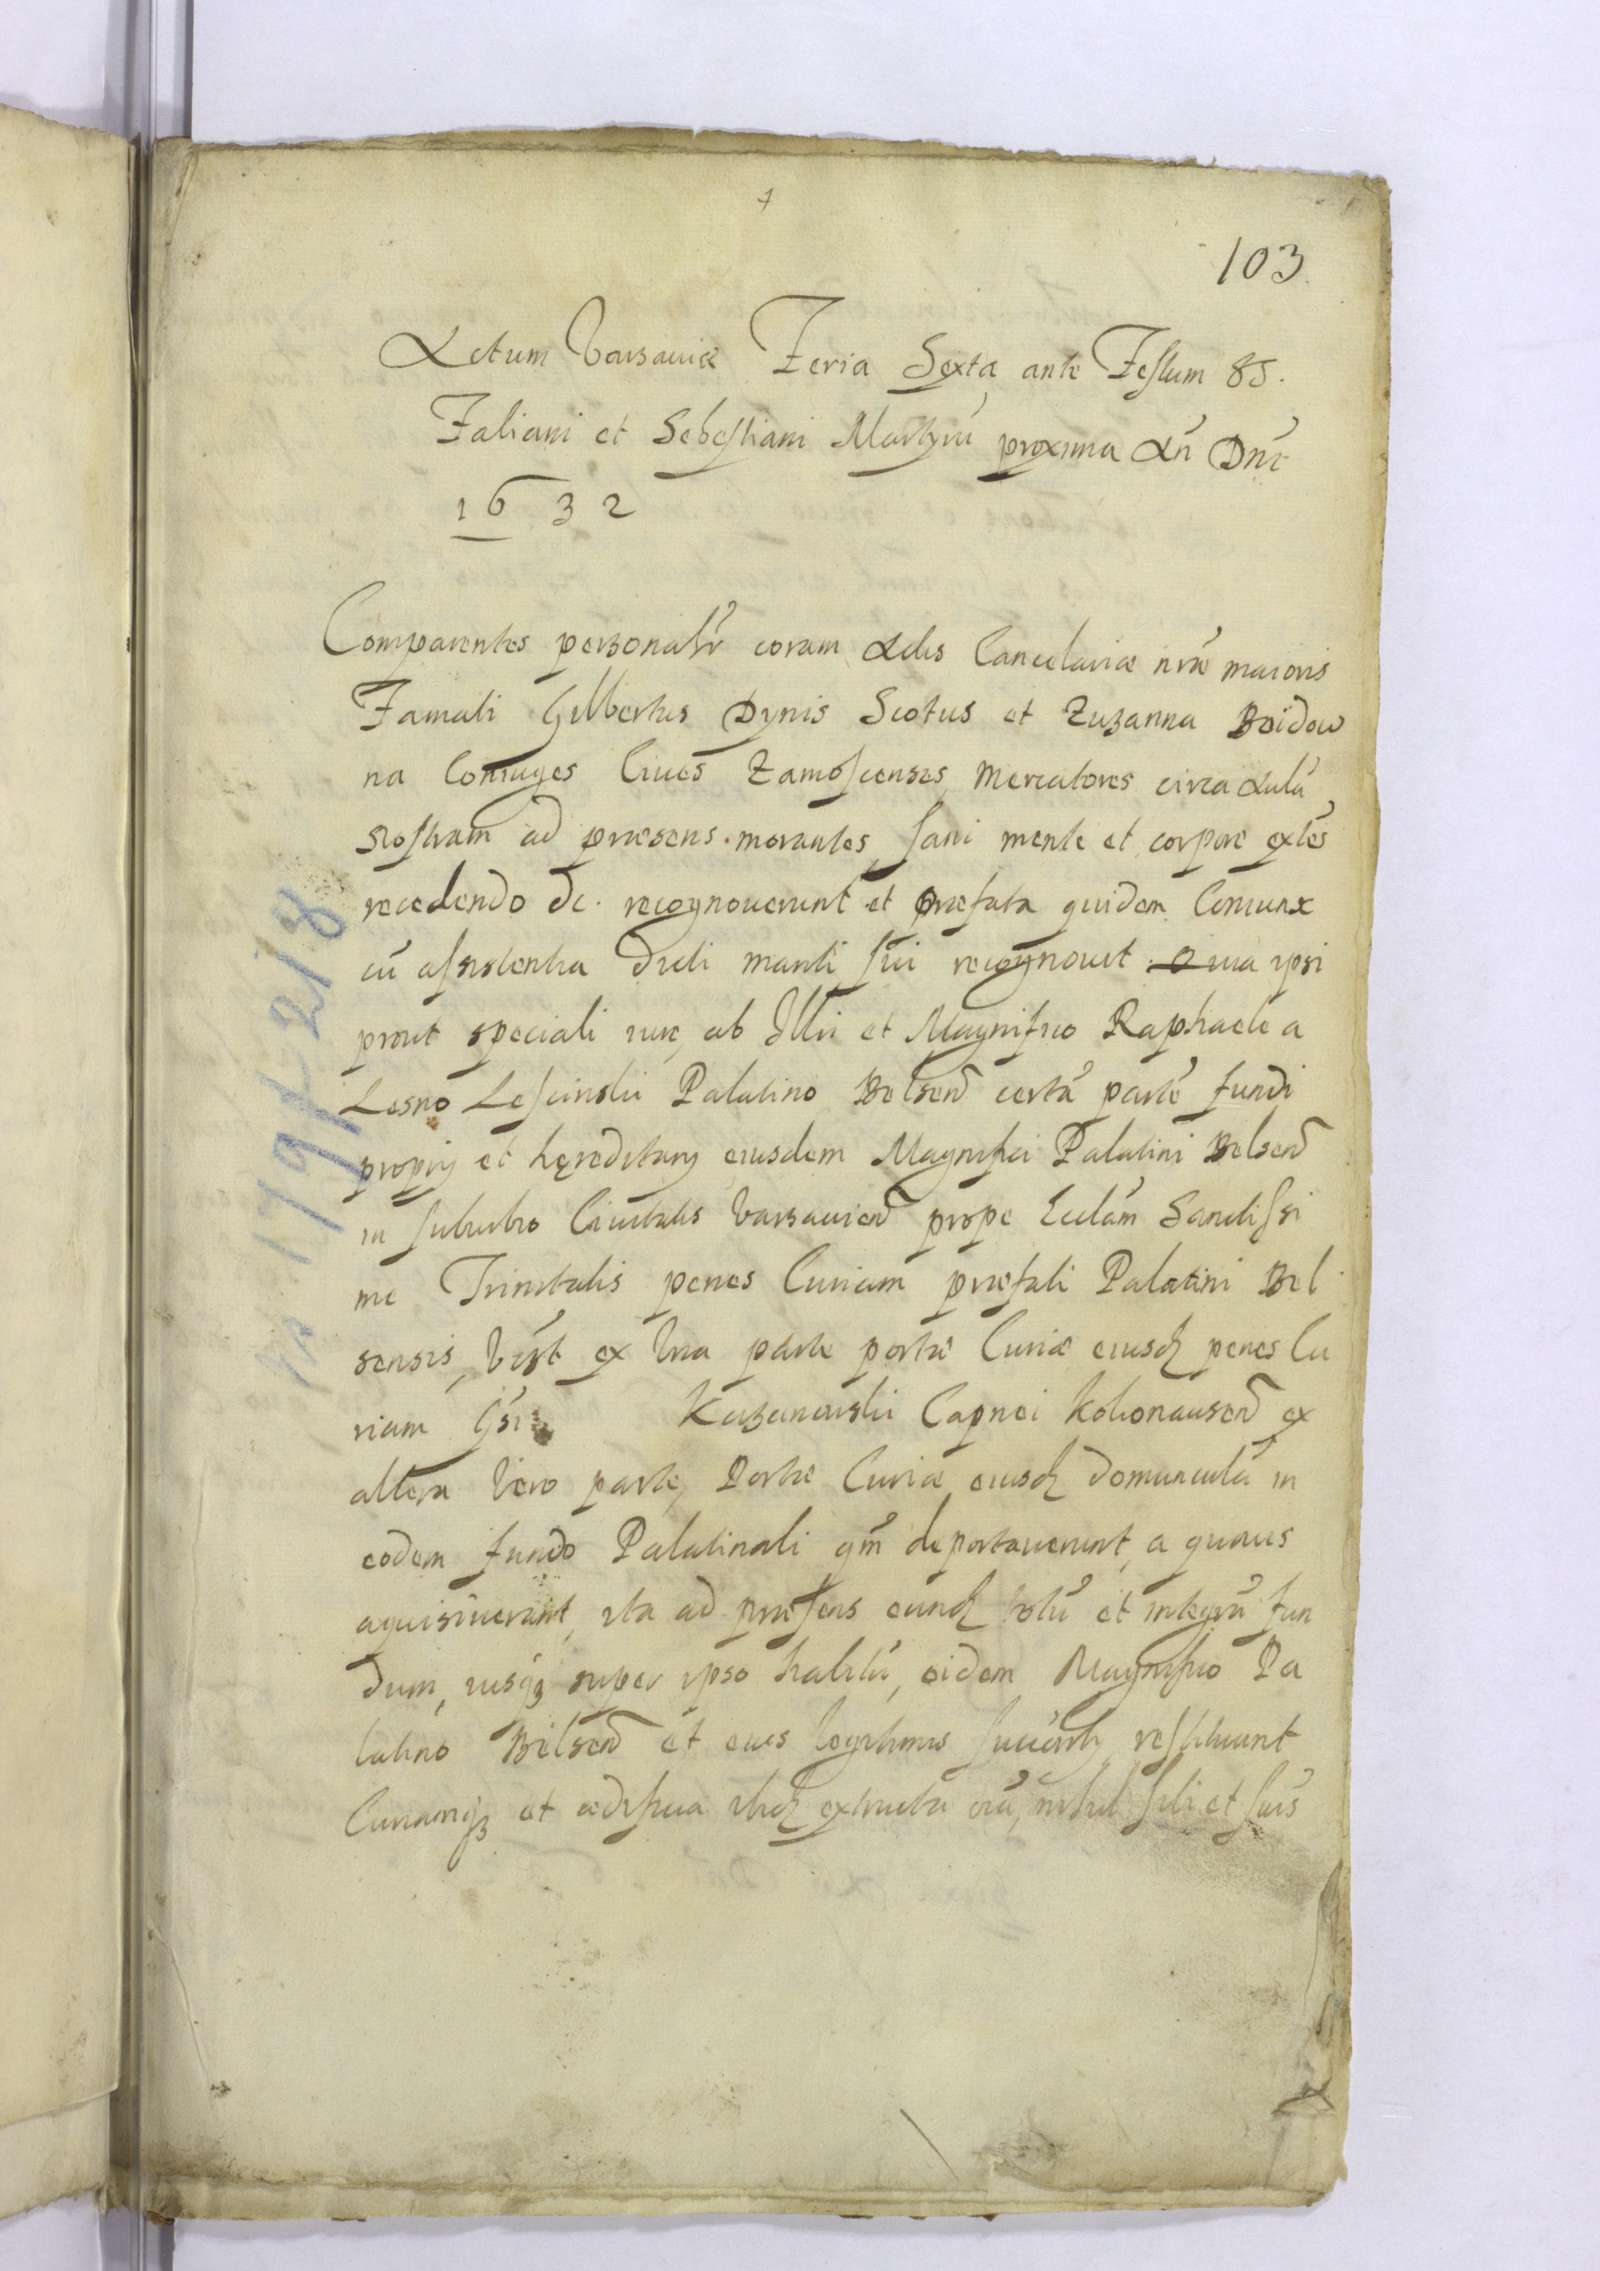 103.
Actum Varsauiæ Feria Sexta ante Festum SS.
Fabiani et Sebestiani Martyrũ proxima Añ Dnĩ
1632
Comparentes personalr̃ coram Actis Cancelariæ nr̃æ maioris
Famati Gilbertus Dynis Scotus et Zuzanna Boidow
na Coniuges Ciues Zamoscenses, Mercatores circa Aulã
Nostram ad præsens morantes, sani mente et corpore extẽs
recedendo &c. recognouerunt et præfata quidem Coniunx
cũ assistentia dicti mariti sui recognouit Quia ipsi
prout speciali iure, ab Illri et Magnifico Raphaele a
Lesno Lescinski Palatino Belsen certã partẽ fundi
proprij et hereditarij eiusdem Magnifici Palatini Belsen
in suburbio Ciuitatis Varsauien prope Ecclãm Sanctissi
me Trinitatis penes Curiam præfati Palatini Bel
sensis, Vizt ex Vna parte portæ Curiæ eiusd penes Cu
riam Gsi Kazanowski Capnei Kokonausen ex
altera Vero parte, Portæ Curiæ eiusd domunculã in
eodem fundo Palatinali qm̃ deportauerunt, a quouis
aquisiuerant, ita ad præsens eund totũ et integrũ fun
dum, iusq; super ipso habitũ, eidem Magnifico Pa
latino Belsen et eius legitimis succẽrib, restituunt
Curiamq; et ædificia ibid extructa oĩa, nihil sibi et suis